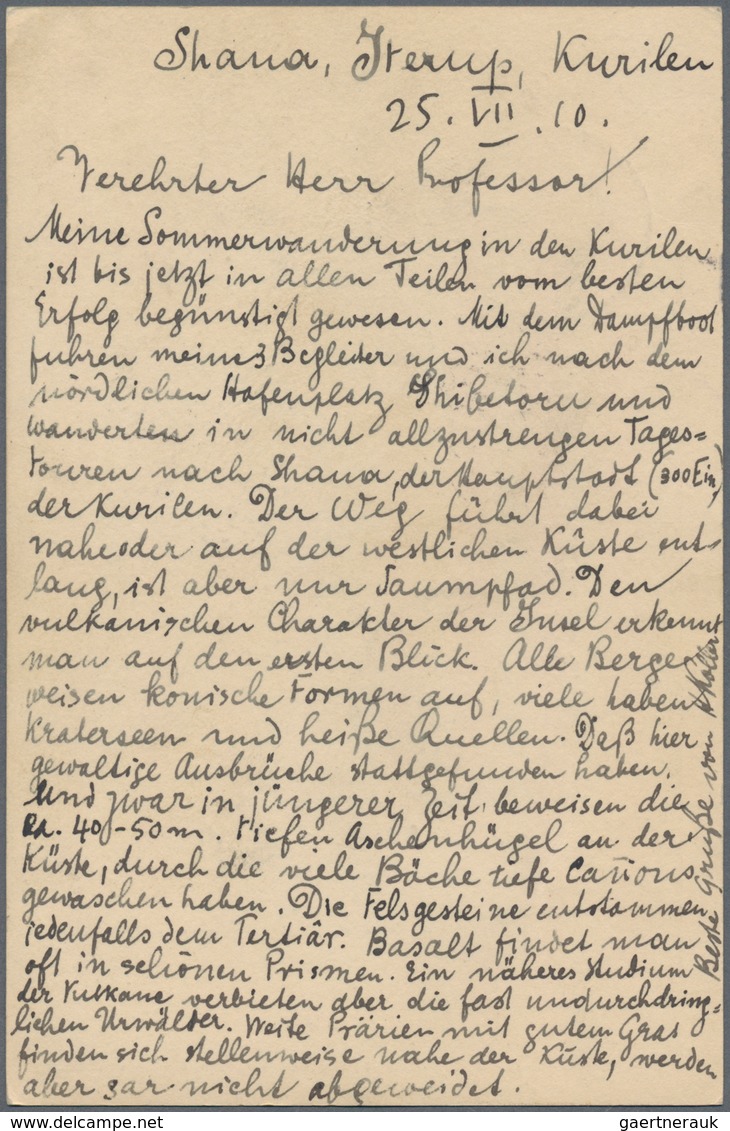 Shana, Iterup, Kurilen
25. VII. 10.
Verehrter Herr Professor!
Meine Sommerwanderung in den Kurilen
ist bis jetzt in allen Teilen vom besten
Erfolg begünstigt gewesen. Mit dem Dampfboot
fuhren meine 3 Begleiter und ich nach dem
nördlichen Hafenplatz Shibetoru und
wanderten in nicht allzustrengen Tages=
touren nach Shana, der Hauptstadt (300 Ein.)
der Kurilen. Der Weg führt dabei
nahe oder auf der westlichen Küste ent-
lang, ist aber nur Saumpfad. Den
vulkanischen Charakter der Insel erkennt
man auf den ersten Blick. Alle Berge
weisen konische Formen auf, viele haben
Kraterseen und heiße Quellen. Daß hier
gewaltige Ausbrüche stattgefunden haben,
und zwar in jüngerer Zeit, beweisen die
ca. 40-50 m. tiefen Aschenhügel an der
Küste, durch die viele Bäche tiefe Cañons
gewaschen haben. Die Felsgesteine entstammen
jedenfalls dem Tertiär. Basalt findet man
oft in schönen Prismen. Ein näheres Studium
der Vulkane verbieten aber die fast undurchdring=
lichen Urwälder. Weite Prärien mit gutem Gras
finden sich stellenweise nahe der Küste, werden
aber gar nicht abgeweidet.
Beste Grüße von
gaertnerauk